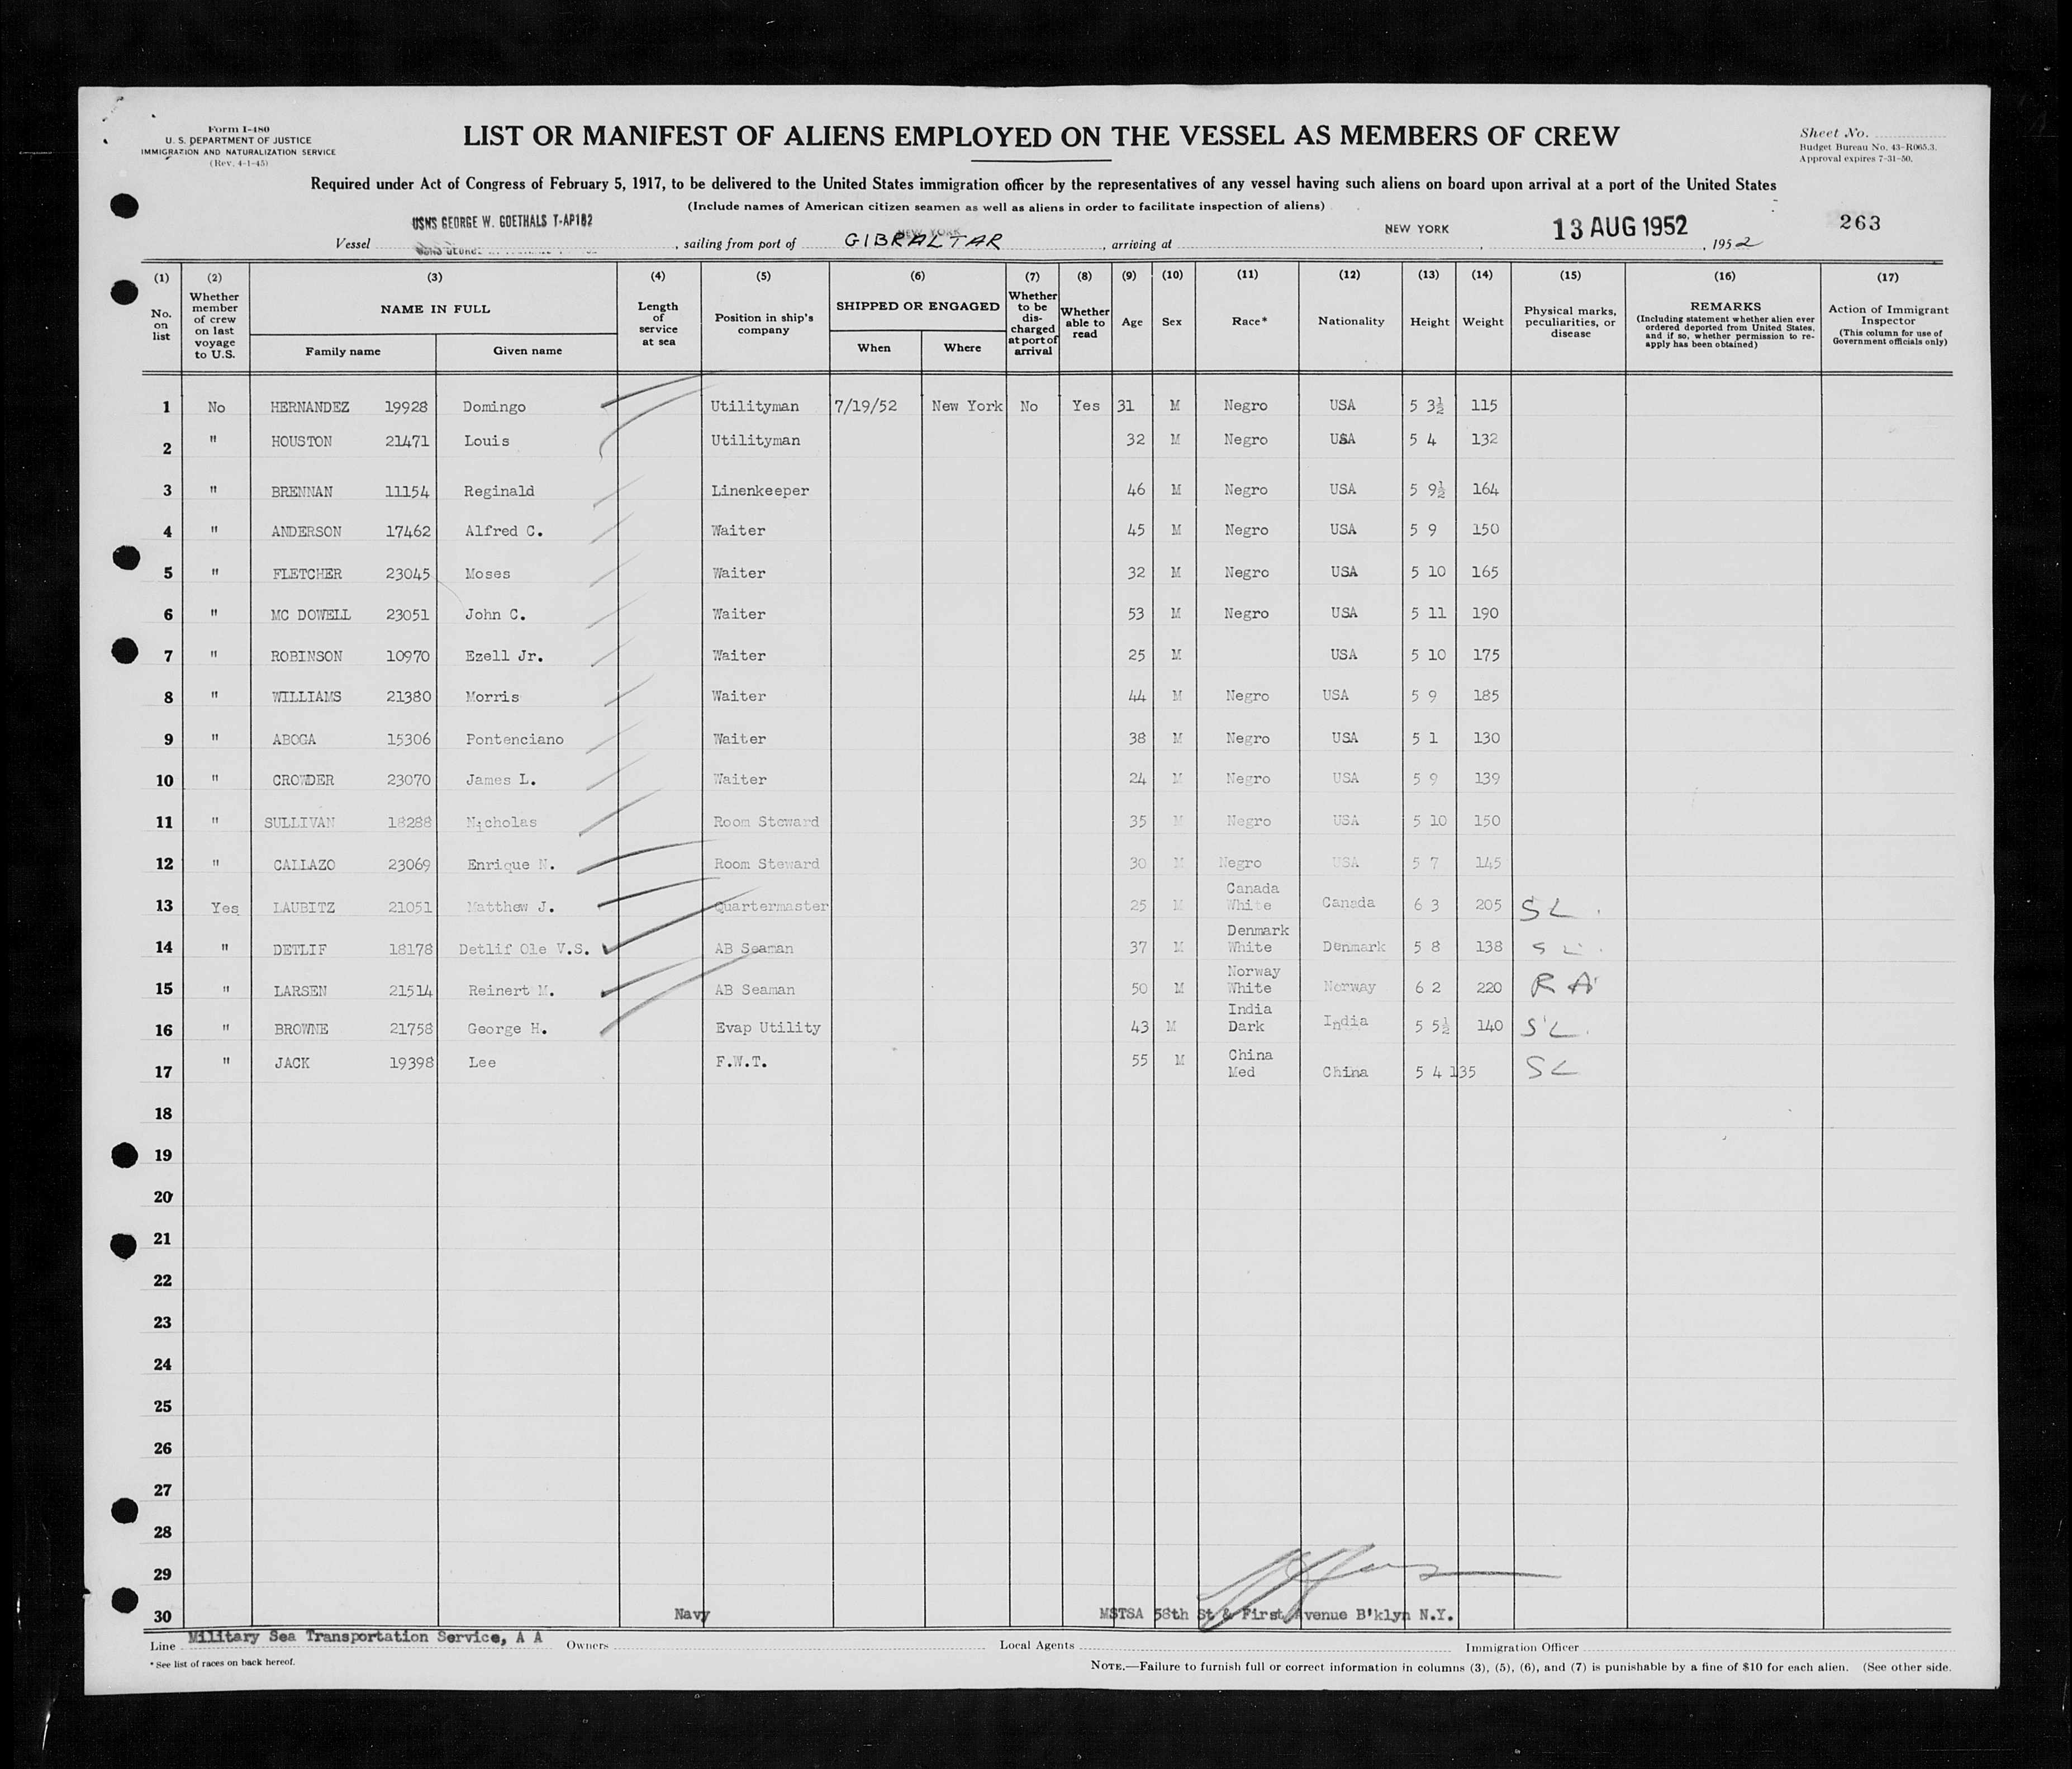 Form I-480
U. S. DEPARTMENT OF JUSTICE
IMMIGRATION AND NATURALIZATION SERVICE
(Rev. 4-1-45)
LIST OR MANIFEST OF ALIENS EMPLOYED ON THE VESSEL AS MEMBERS OF CREW
Sheet No.
Budget Bureau No. 43-R065.3.
Approval expires 7-31-50.
Required under Act of Congress of February 5, 1917, to be delivered to the United States immigration officer by the representatives of any vessel having such aliens on board upon arrival at a port of the United States
(Include names of American citizen seamen as well as aliens in order to facilitate inspection of aliens)
USNS GEORGE W. GOETHALS T-AP182
Vessel , sailing from port of GIBRALTAR , arriving at NEW YORK , 13 AUG 1952 , 1952 263
(1) (2) (3) (4) (5) (6) (7) (8) (9) (10) (11) (12) (13) (14) (15) (16) (17)
No. on list
Whether member of crew on last voyage to U.S.
NAME IN FULL
Family name
Given name
Length of service at sea
Position in ship's company
SHIPPED OR ENGAGED
When
Where
Whether to be discharged at port of arrival
Whether able to read
Age
Sex
Race*
Nationality
Height
Weight
Physical marks, peculiarities, or disease
REMARKS
(Including statement whether alien ever ordered deported from United States, and if so, whether permission to re-apply has been obtained)
Action of Immigrant Inspector
(This column for use of Government officials only)
1 No HERNANDEZ 19928 Domingo Utilityman 7/19/52 New York No Yes 31 M Negro USA 5 3½ 115
2 " HOUSTON 21471 Louis Utilityman 32 M Negro USA 5 4 132
3 " BRENNAN 11154 Reginald Linenkeeper 46 M Negro USA 5 9½ 164
4 " ANDERSON 17462 Alfred C. Waiter 45 M Negro USA 5 9 150
5 " FLETCHER 23045 Moses Waiter 32 M Negro USA 5 10 165
6 " MC DOWELL 23051 John C. Waiter 53 M Negro USA 5 11 190
7 " ROBINSON 10970 Ezell Jr. Waiter 25 M USA 5 10 175
8 " WILLIAMS 21380 Morris Waiter 44 M Negro USA 5 9 185
9 " ABOGA 15306 Pontenciano Waiter 38 M Negro USA 5 1 130
10 " CROWDER 23070 James L. Waiter 24 M Negro USA 5 9 139
11 " SULLIVAN 18288 Nicholas Room Steward 35 M Negro USA 5 10 150
12 " CALLAZO 23069 Enrique N. Room Steward 30 M Negro USA 5 7 145
13 Yes LAUBITZ 21051 Matthew J. Quartermaster 25 M Canada White Canada 6 3 205 SL.
14 " DETLIF 18178 Detlif Ole V.S. AB Seaman 37 M Denmark White Denmark 5 8 138 SL.
15 " LARSEN 21514 Reinert M. AB Seaman 50 M Norway White Norway 6 2 220 RA
16 " BROWNE 21758 George H. Evap Utility 43 M India Dark India 5 5½ 140 SL.
17 " JACK 19398 Lee F.W.T. 55 M China Med China 5 4 135 SL
18
19
20
21
22
23
24
25
26
27
28
29
30
Line Military Sea Transportation Service, A A Owners Navy Local Agents MSTSA 58th St & First Avenue B'klyn N.Y. Immigration Officer
* See list of races on back hereof.
NOTE.—Failure to furnish full or correct information in columns (3), (5), (6), and (7) is punishable by a fine of $10 for each alien. (See other side.